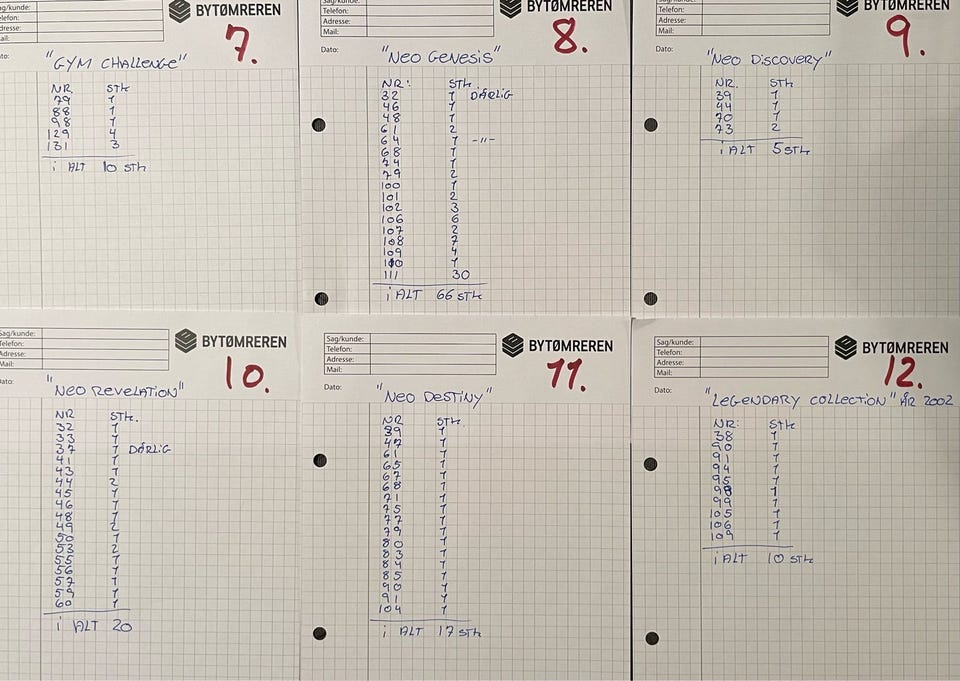 ag/kunde:
elefon:
dresse:
ail:
BYTØMREREN
7.
ato:
"GYM CHALLENGE"
NR. STK
79 1
88 1
98 1
129 4
131 3
i ALT 10 STK
Sag/kunde:
Telefon:
Adresse:
Mail:
BYTØMREREN
8.
Dato:
"NEO GENESIS"
NR: STK.
32 1 DÅRLIG
46 1
48 1
61 2
64 1 -11-
68 1
74 1
79 2
100 1
101 2
102 3
106 6
107 2
108 7
109 4
110 1
111 30
i ALT 66 STK
Telefon:
Adresse:
Mail:
BYTØMREREN
9.
Dato:
"NEO DISCOVERY"
NR. STK
39 1
44 1
70 1
73 2
i ALT 5 STK
Sag/kunde:
Telefon:
Adresse:
Mail:
BYTØMREREN
10.
Dato:
"NEO REVELATION"
NR STK.
32 1
33 1
37 1 DÅRLIG
41 1
43 1
44 2
45 1
46 1
48 1
49 2
50 1
53 2
55 1
56 1
57 1
59 1
60 1
i ALT 20
Sag/kunde:
Telefon:
Adresse:
Mail:
BYTØMREREN
11.
Dato:
"NEO DESTINY"
NR STK.
39 1
47 1
61 1
65 1
67 1
68 1
71 1
75 1
77 1
79 1
80 1
83 1
84 1
85 1
90 1
91 1
104 1
i ALT 17 STK
Sag/kunde:
Telefon:
Adresse:
Mail:
BYTØMREREN
12.
Dato:
"LEGENDARY COLLECTION" ÅR 2002
NR: STK
38 1
90 1
91 1
94 1
95 1
98 1
99 1
105 1
106 1
109 1
i ALT 10 STK